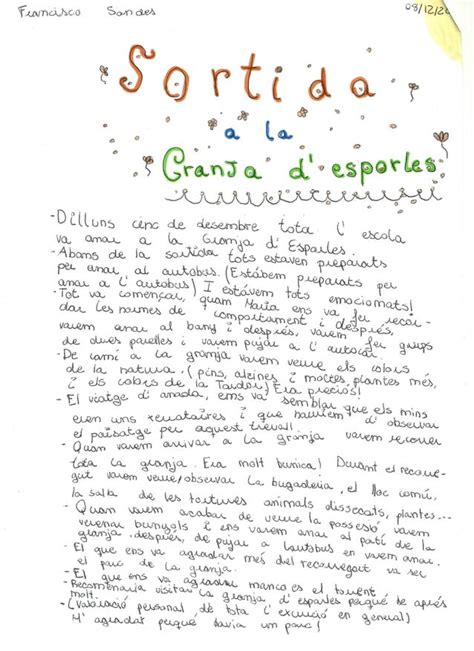 Francisco Sandes 08/12/20
Sortida
a la
Granja d'esporles
-Dilluns cinc de desembre tota l'escola
va anar a la Granja d'Esporles.
-Abans de la sortida tots estaven preparats
per anar al autobus. (Estàbem preparats per
anar a l'autobus) I estàvem tots emocionats!
-Tot va començar, quan Maria ens va fer recor-
dar les normes de comportament i després,
varem anar al bany i després, varem fer grups
de dues parelles i varem pujar a l'autocar.
-De camí a la granja varem veure els colors
de la natura, (pins, alzines i moltes plantes més,
i els colors de la Tardor) Era preciós!
-El viatge d'anada, ens va semblar que els mins
eren uns i que d'observar
el paisatge per aquest treball.
-Quan varem arrivar a la granja varem recorrer
tota la granja. Era molt bunica! Durant el recorre-
gut varem veure/observar la bugaderia, el lloc comú,
la sala de les tortures animals dissecats, plantes...
-Quan varem acabar de veure la possesió varem
verenar bunyols i ens varem anar al pati de la
granja, després, de pujar a l'autobus en varem anar.
-El que ens va agradar més del recorregut va ser
el parc de la granja.
-El que ens va agradar manco es el torrent
-Recomenaria visitar la granja d'esporles perquè he après
molt.
-(Valoració personal de tota l'excursió en general)
M'agradat perquè havia un parc!